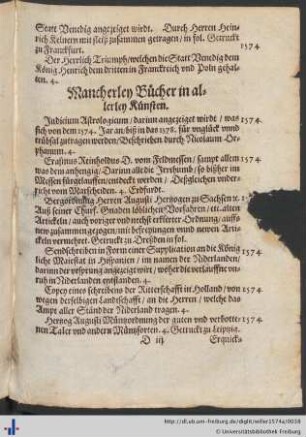 Statt Venedig angezeiget wirdt. Durch Herren Hein-
rich Kelnern mit fleiß zusammen getragen / in fol. Getruckt
zu Franckfurt. 1574
Der Herrlich Triumph / welchen die Statt Venedig dem
König Henrich dem dritten in Franckreich vnd Poln gehal-
ten. 4.
Mancherley Bücher in al-
lerley Künsten.
Judicium Astrologicum / darinn angezeiget wirdt / was 1574
sich von dem 1574. Jar an / biß in das 1578. für vnglück vnnd
trübsal zutragen werden / Beschrieben durch Nicolaum Or-
phanum. 4.
Erasmus Reinholdus D. vom Feldmessen / sampt allem 1574
was dem anhengig / Darinn alle die Irrthumb / so bißher im
Messen fürgelauffen / entdeckt werden / Desgleichen vnder-
richt vom Marscheiden. 4. Erdfurdt.
Bergordnung Herren Augusti Hertzogen zu Sachsen
Auß seiner Churf. Gnaden löblichen Vorfahren / etc. alten
Artickeln / auch voriger vnd nechst eröffneter Ordnung / auffs
new zusammen gezogen / mit besreyungen vnnd newen Arti-
ckeln vermehret. Getruckt zu Dreßden in fol.
Sendschreiben in Form einer Supplication an die König 1574
liche Maiestat in Hispanien / im namen der Niderlanden /
darinn der vrsprung angezeigt wirt / woher die verlauffne on-
ruh in Niderlanden entstanden. 4.
Copey eines schreibens der Ritterschafft in Holland / von 1574
wegen derselbigen Landschafft / an die Herren / welche das
Ampt aller Ständ der Niderland tragen. 4.
Hertzog Augusti Müntzordnung der guten vnd verbotte- 1574
nen Taler vnd andern Müntzsorten. 4. Getruckt zu Leipzig.
D iij Erquick-
http://dl.ub.uni-freiburg.de/diglit/willer1574a/0028
© Universitätsbibliothek Freiburg